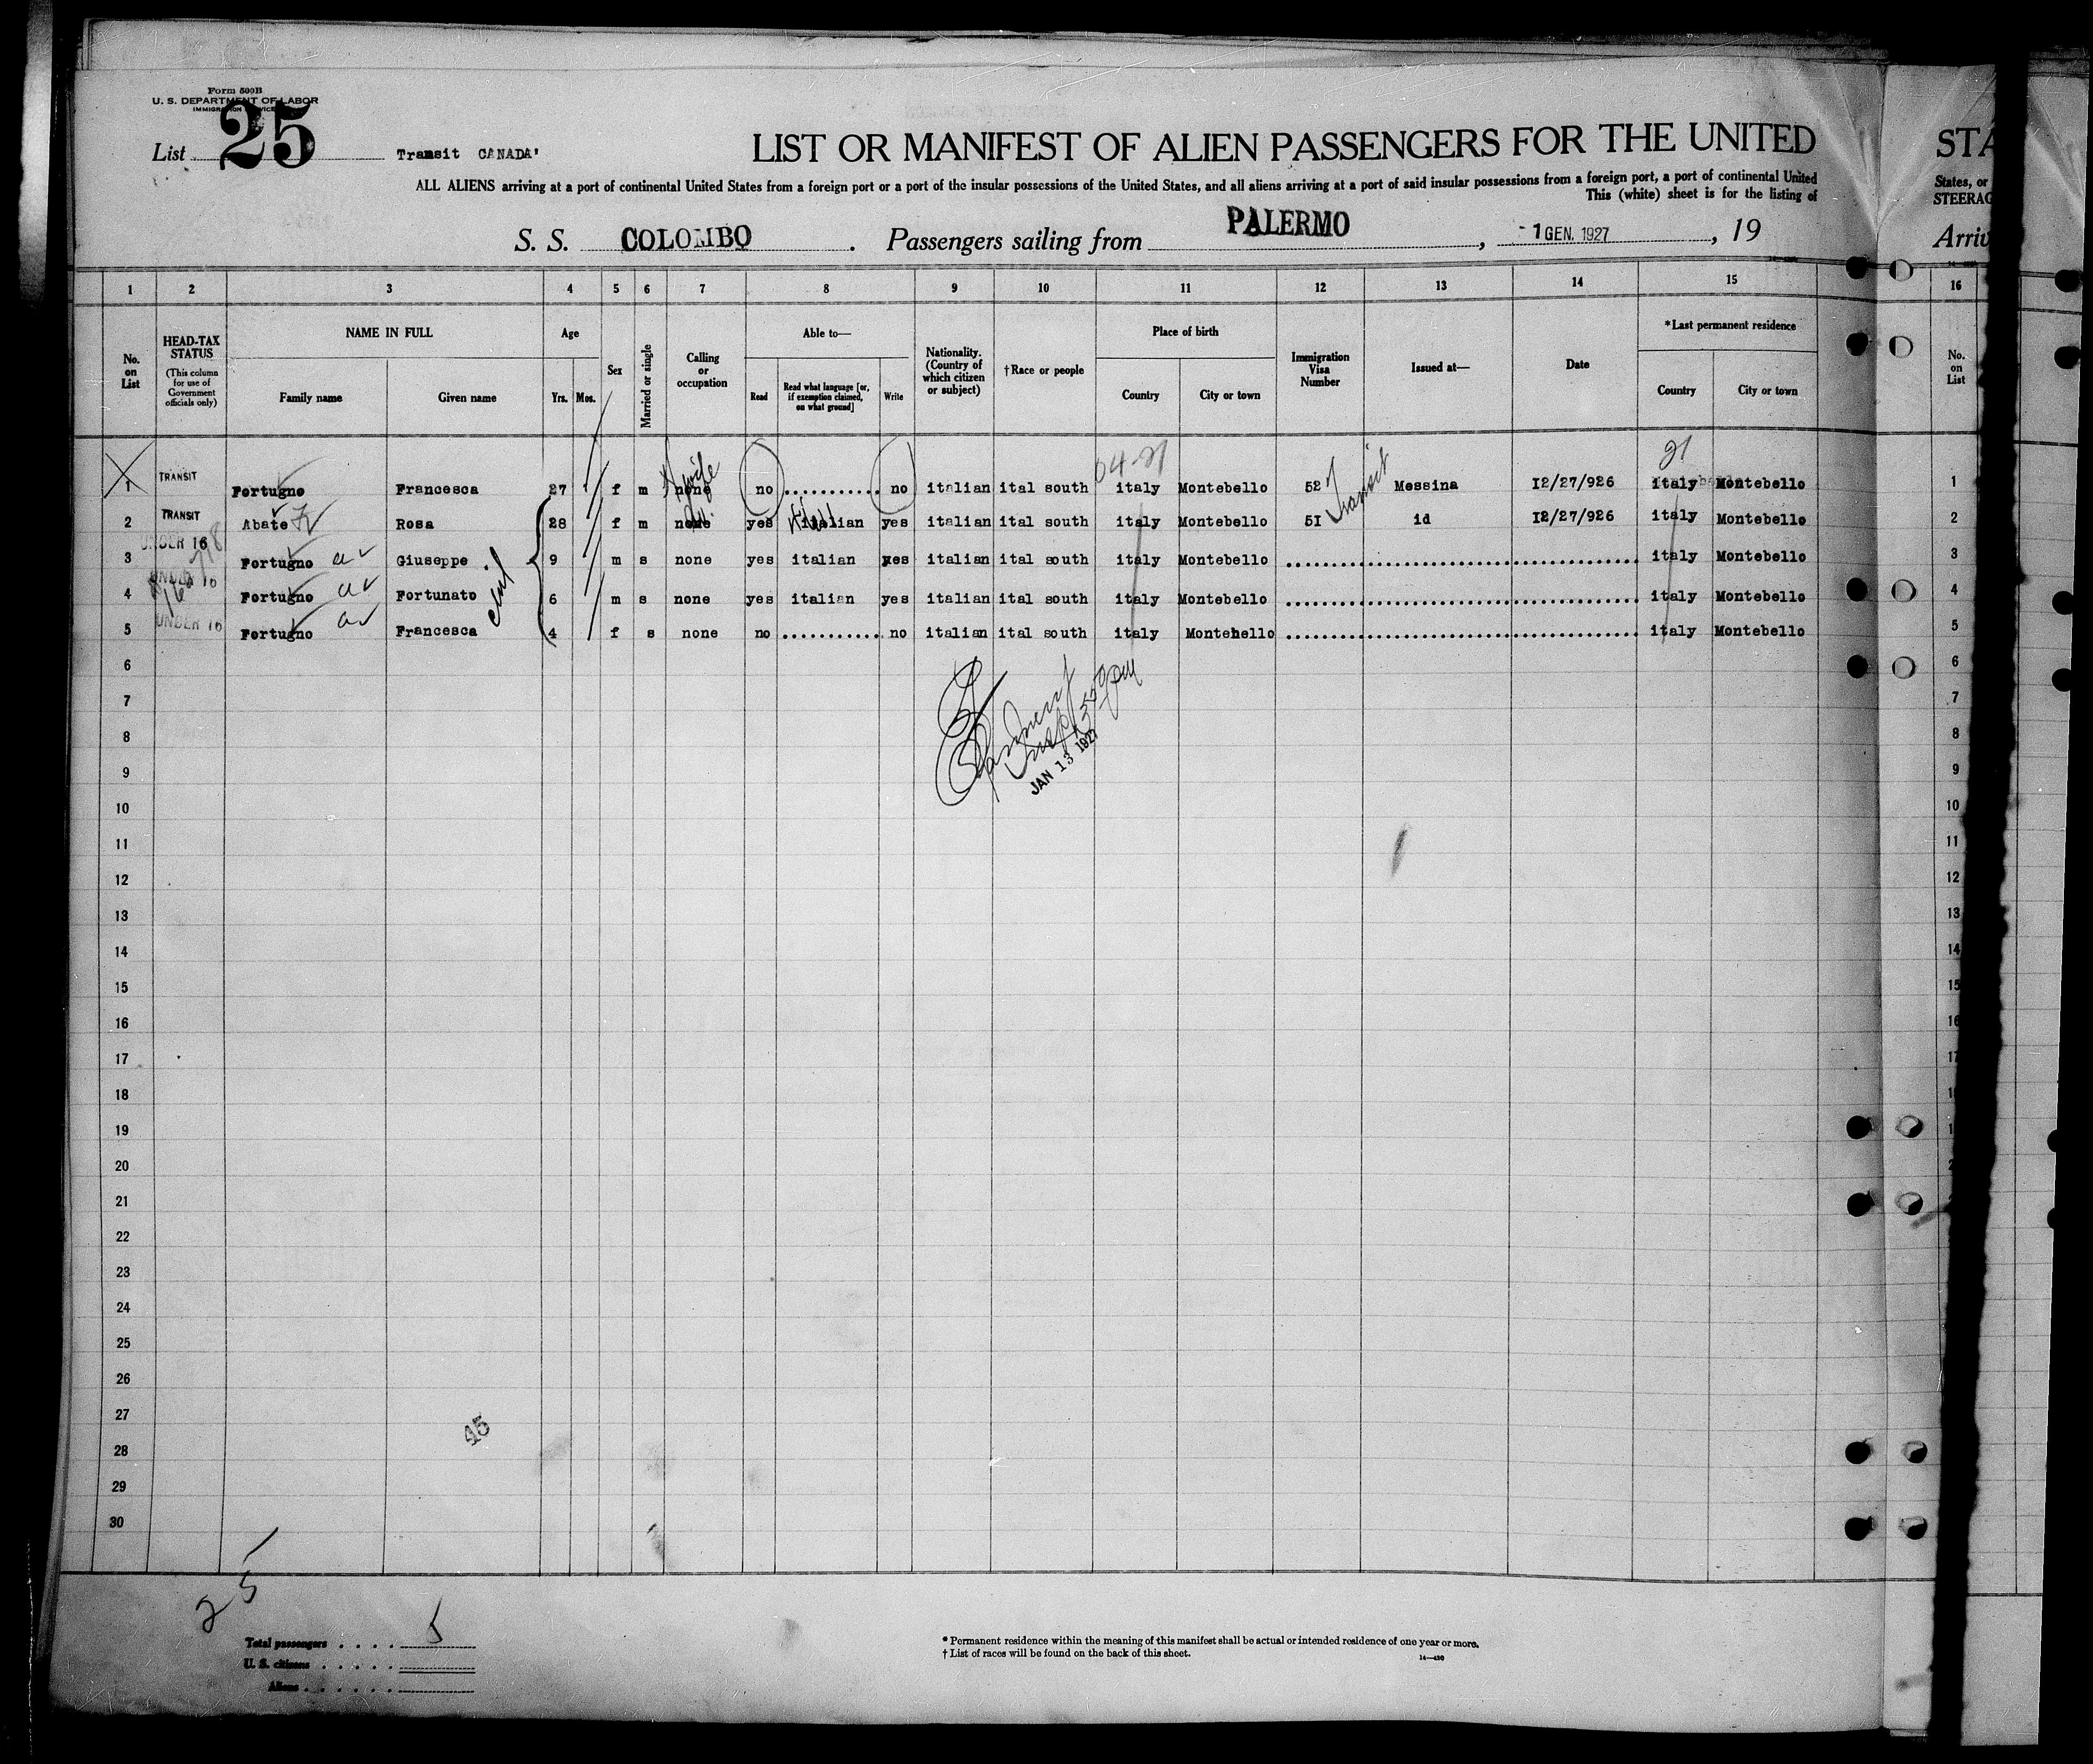 Form 500B
U. S. DEPARTMENT OF LABOR
IMMIGRATION SERVICE
List 25 Transit CANADA'
LIST OR MANIFEST OF ALIEN PASSENGERS FOR THE UNITED
ALL ALIENS arriving at a port of continental United States from a foreign port or a port of the insular possessions of the United States, and all aliens arriving at a port of said insular possessions from a foreign port, a port of continental United
This (white) sheet is for the listing of
S. S. COLOMBO. Passengers sailing from PALERMO, -1 GEN. 1927, 19
STA
States, or
STEERAG
Arriv
1 2 3 4 5 6 7 8 9 10 11 12 13 14 15 16
No. on List
HEAD-TAX STATUS
(This column for use of Government officials only)
NAME IN FULL
Family name
Given name
Age
Yrs.
Mos.
Sex
Married or single
Calling or occupation
Able to—
Read
Read what language [or, if exemption claimed, on what ground]
Write
Nationality. (Country of which citizen or subject)
†Race or people
Place of birth
Country
City or town
Immigration Visa Number
Issued at—
Date
*Last permanent residence
Country
City or town
No. on List
04-21 21
1 TRANSIT Fortugno Francesca 27 f m none wife no no italian ital south italy Montebello 52 Transit Messina 12/27/926 italy Montebello 1
2 TRANSIT Abate Rosa 28 f m none yes italian yes italian ital south italy Montebello 51 id 12/27/926 italy Montebello 2
3 UNDER 16 Fortugno Giuseppe 9 m s none yes italian yes italian ital south italy Montebello italy Montebello 3
4 UNDER 16 Fortugno Fortunato 6 m s none yes italian yes italian ital south italy Montebello italy Montebello 4
5 UNDER 16 Fortugno Francesca 4 f s none no no italian ital south italy Montehello italy Montebello 5
6 6
7 7
JAN 13 1927
8 8
9 9
10 10
11 11
12 12
13 13
14 14
15 15
16 16
17 17
18
19
20
21
22
23
24
25
26
27
45
28
29
30
25
Total passengers . . . . 5
U. S. citizens . . . . .
Aliens . . . . . .
* Permanent residence within the meaning of this manifest shall be actual or intended residence of one year or more.
† List of races will be found on the back of this sheet.
14—430